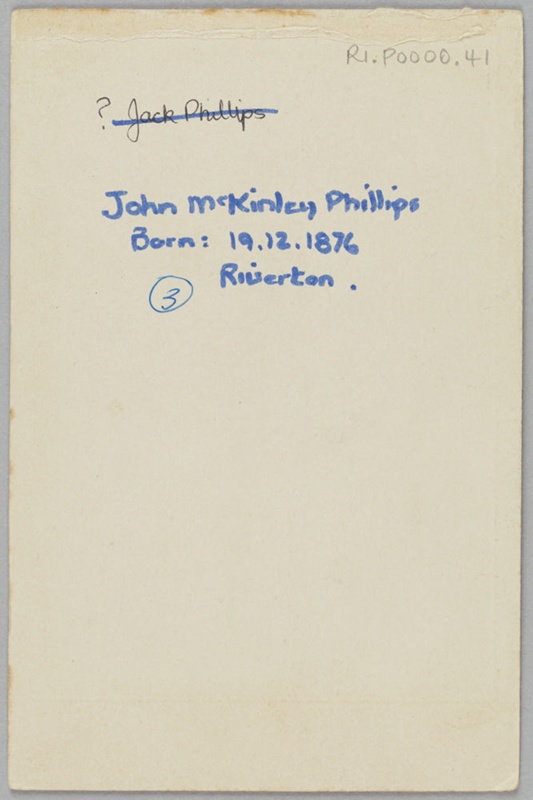 R1.P0000.41
? Jack Phillips
John McKinley Phillips
Born: 19.12.1876
Riverton .
3